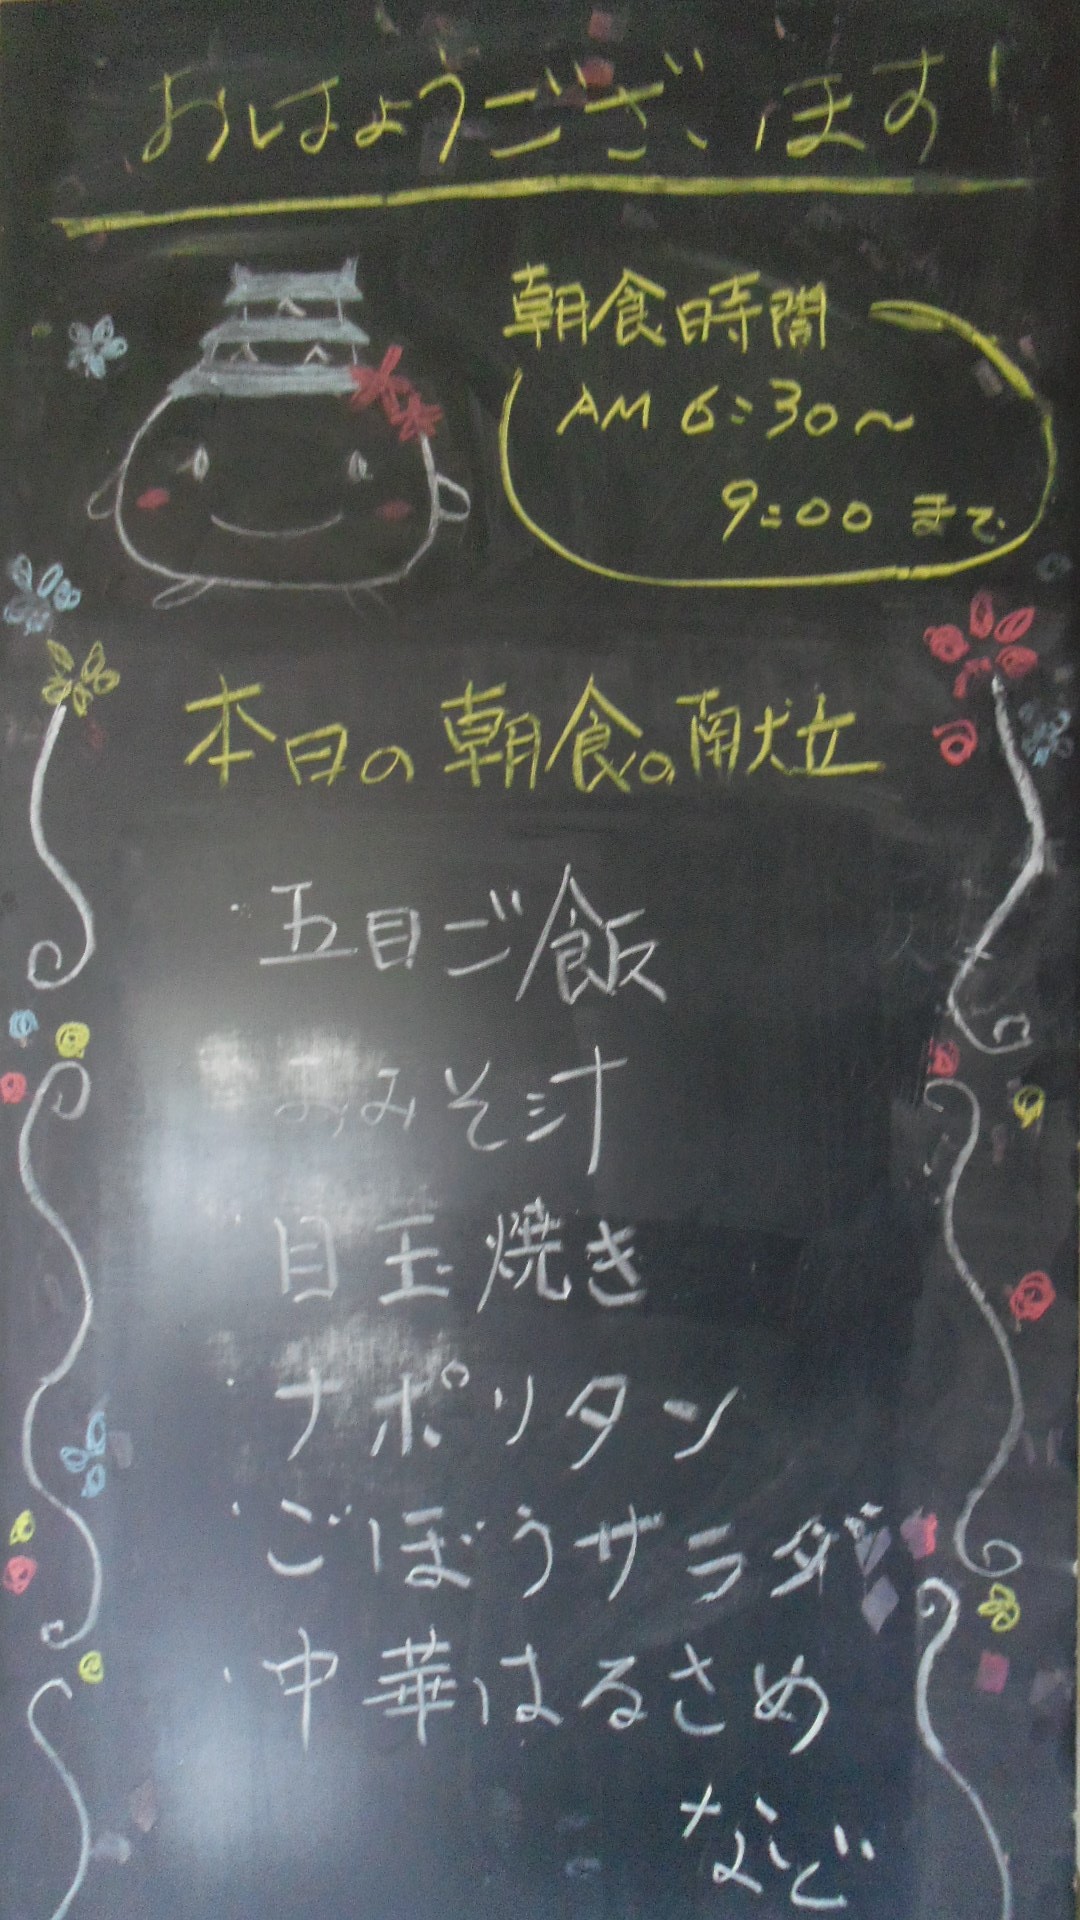 おはようございます!
朝食時間
AM 6:30〜
9:00 まで
本日の朝食の献立
・五目ご飯
おみそ汁
目玉焼き
・ナポリタン
・ごぼうサラダ
・中華はるさめ
など